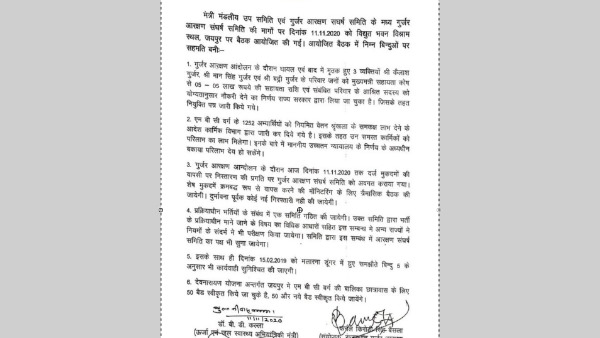 मंत्री मंडलीय उप समिति एवं गुर्जर आरक्षण संघर्ष समिति के मध्य गुर्जर
आरक्षण संघर्ष समिति की मांगों पर दिनांक 11.11.2020 को विद्युत भवन विश्राम
स्थल, जयपुर पर बैठक आयोजित की गई। आयोजित बैठक में निम्न बिन्दुओं पर
सहमति बनी:-
1. गुर्जर आरक्षण आंदोलन के दौरान घायल एवं बाद में मृतक हुए 3 व्यक्तियों श्री कैलाश
गुर्जर, श्री मान सिंह गुर्जर एवं श्री बद्री गुर्जर के परिवार जनों को मुख्यमंत्री सहायता कोष
से 05 – 05 लाख रूपये की सहायता राशि एवं संबंधित परिवार के आश्रित सदस्य को
योग्यतानुसार नौकरी देने का निर्णय राज्य सरकार द्वारा लिया जा चुका है। जिसके तहत
नियुक्ति पत्र जारी किये गये।
2. एम बी सी वर्ग के 1252 अभ्यार्थियों को नियमित वेतन श्रृंखला के समकक्ष लाभ देने के
आदेश कार्मिक विभाग द्वारा जारी कर दिये गये है। इसके तहत उन समस्त कार्मिकों को
परिलाभ का लाभ मिलेगा। इनके बारे में माननीय उच्चतम न्यायालय के निर्णय के अध्यधीन
बकाया परिलाभ देय हो सकेंगे।
3. गुर्जर आरक्षण आन्दोलन के दौरान आज दिनांक 11.11.2020 तक दर्ज मुकदमों की
वापसी पर निस्तारण की प्रगति पर गुर्जर आरक्षण संघर्ष समिति को अवगत कराया गया।
शेष मुकदमें क्रमबद्ध रूप से वापस करने की मॉनिटरिंग के लिए त्रैमासिक बैठक की
जायेगी। दुर्भावना पूर्वक कोई नई गिरफ्तारी नही की जायेगी।
4. प्रक्रियाधीन भर्तियों के संबंध में एक समिति गठित की जायेगी। उक्त समिति द्वारा भर्ती
के प्रक्रियाधीन माने जाने के विषय का विधिक आधारों सहित इस सम्बन्ध में अन्य राज्यों में
नियमों के संदर्भ में भी परीक्षण किया जायेगा। समिति द्वारा इस सम्बंध में आरक्षण संघर्ष
समिति का पक्ष भी सुना जायेगा।
5. इसके साथ ही दिनांक 15.02.2019 को मलारना डूंगर में हुए समझौते बिन्दु 5 के
अनुसार भी कार्यवाही सुनिश्चित की जाएगी।
6. देवनारायण योजना अन्तर्गत जयपुर में एम बी सी वर्ग की बालिका छात्रावास के लिए
50 बैड स्वीकृत किये जा चुके है, 50 और नये बैड स्वीकृत किये जायेंगे।
11/11/2020
डॉ. बी. डी. कल्ला
(ऊर्जा एवं जन स्वास्थ्य अभियांत्रिकी मंत्री)